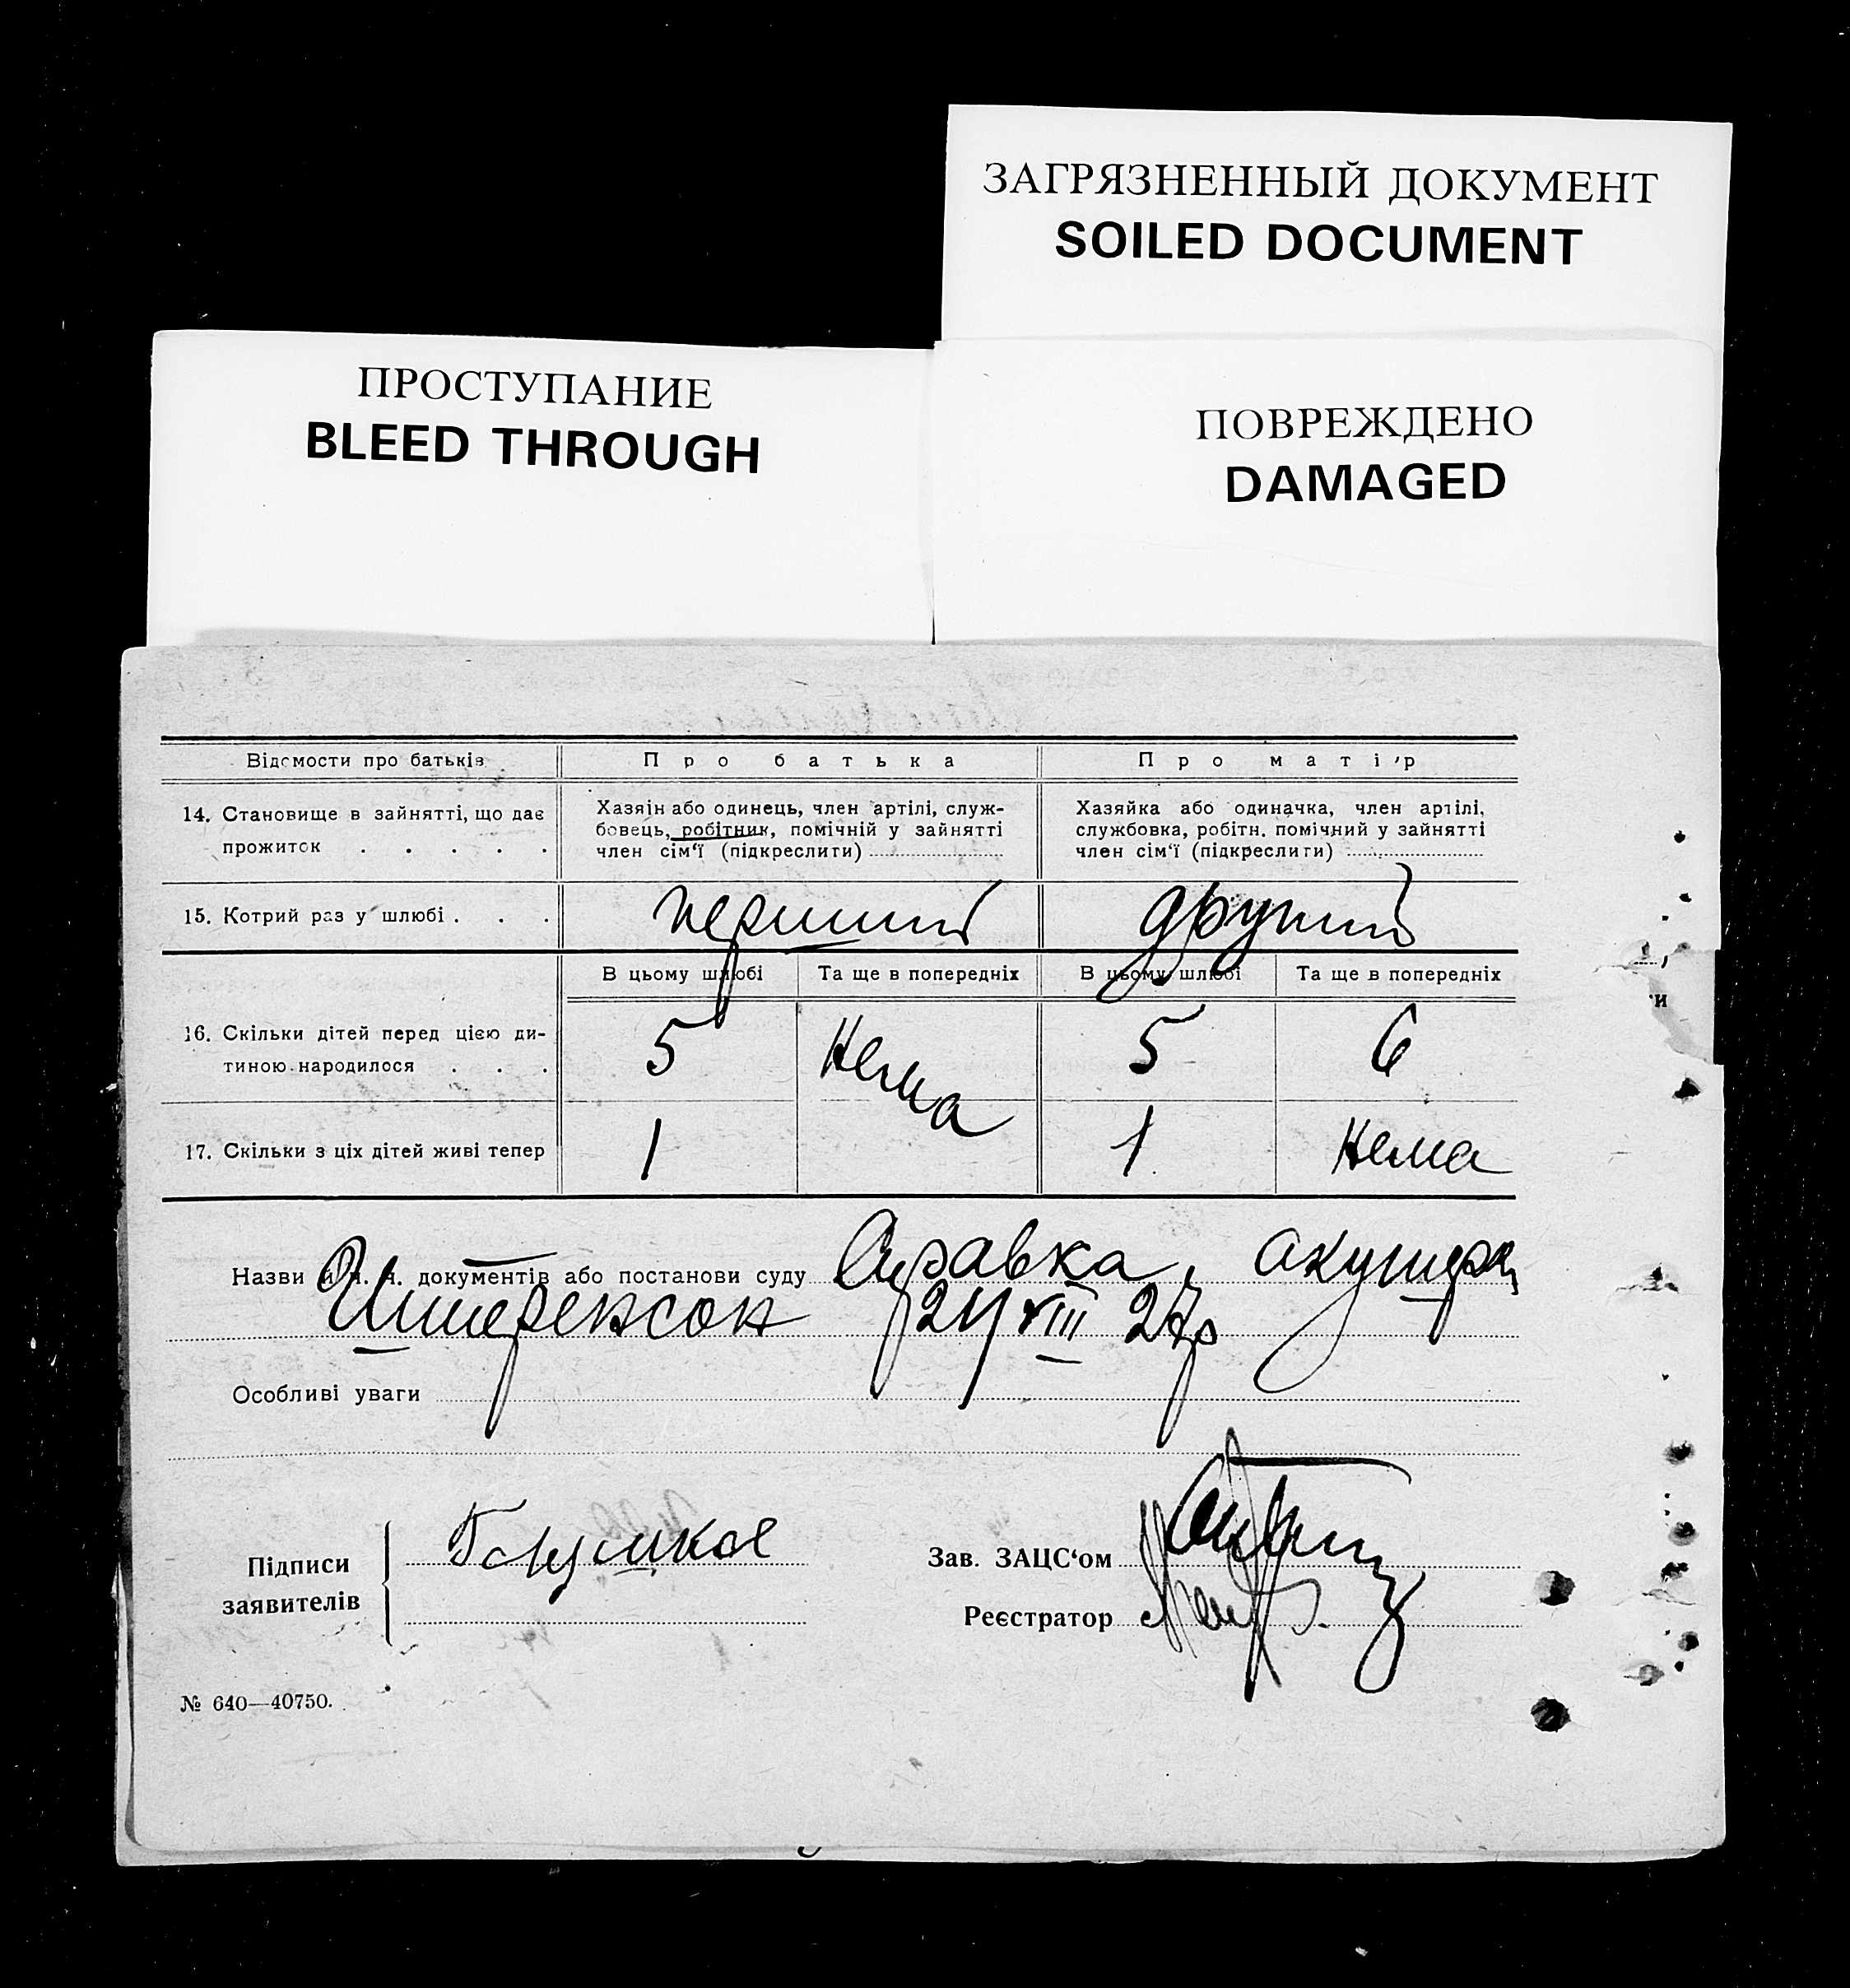 ЗАГРЯЗНЕННЫЙ ДОКУМЕНТ
SOILED DOCUMENT
ПРОСТУПАНИЕ
BLEED THROUGH
ПОВРЕЖДЕНО
DAMAGED
Відомости про батьків
Про батька
Про матір
14. Становище в зайнятті, що дає
прожиток . . . . .
Хазяїн або одинець, член артілі, служ-
бовець, робітник, помічній у зайнятті
член сім'ї (підкреслити)
Хазяйка або одиначка, член артілі,
службовка, робітн. помічний у зайнятті
член сім'ї (підкреслити)
15. Котрий раз у шлюбі . . .
перший
другий
В цьому шлюбі
Та ще в попередніх
В цьому шлюбі
Та ще в попередніх
16. Скільки дітей перед цією ди-
тиною народилося . . .
5
Нема
5
6
17. Скільки з ціх дітей живі тепер
1
1
Нема
Назви й н. н. документів або постанови суду Справка, акушерки
24 VIII 27р
Особливі уваги
Підписи
заявителів
Зав. ЗАЦС'ом
Реєстратор
№ 640—40750.